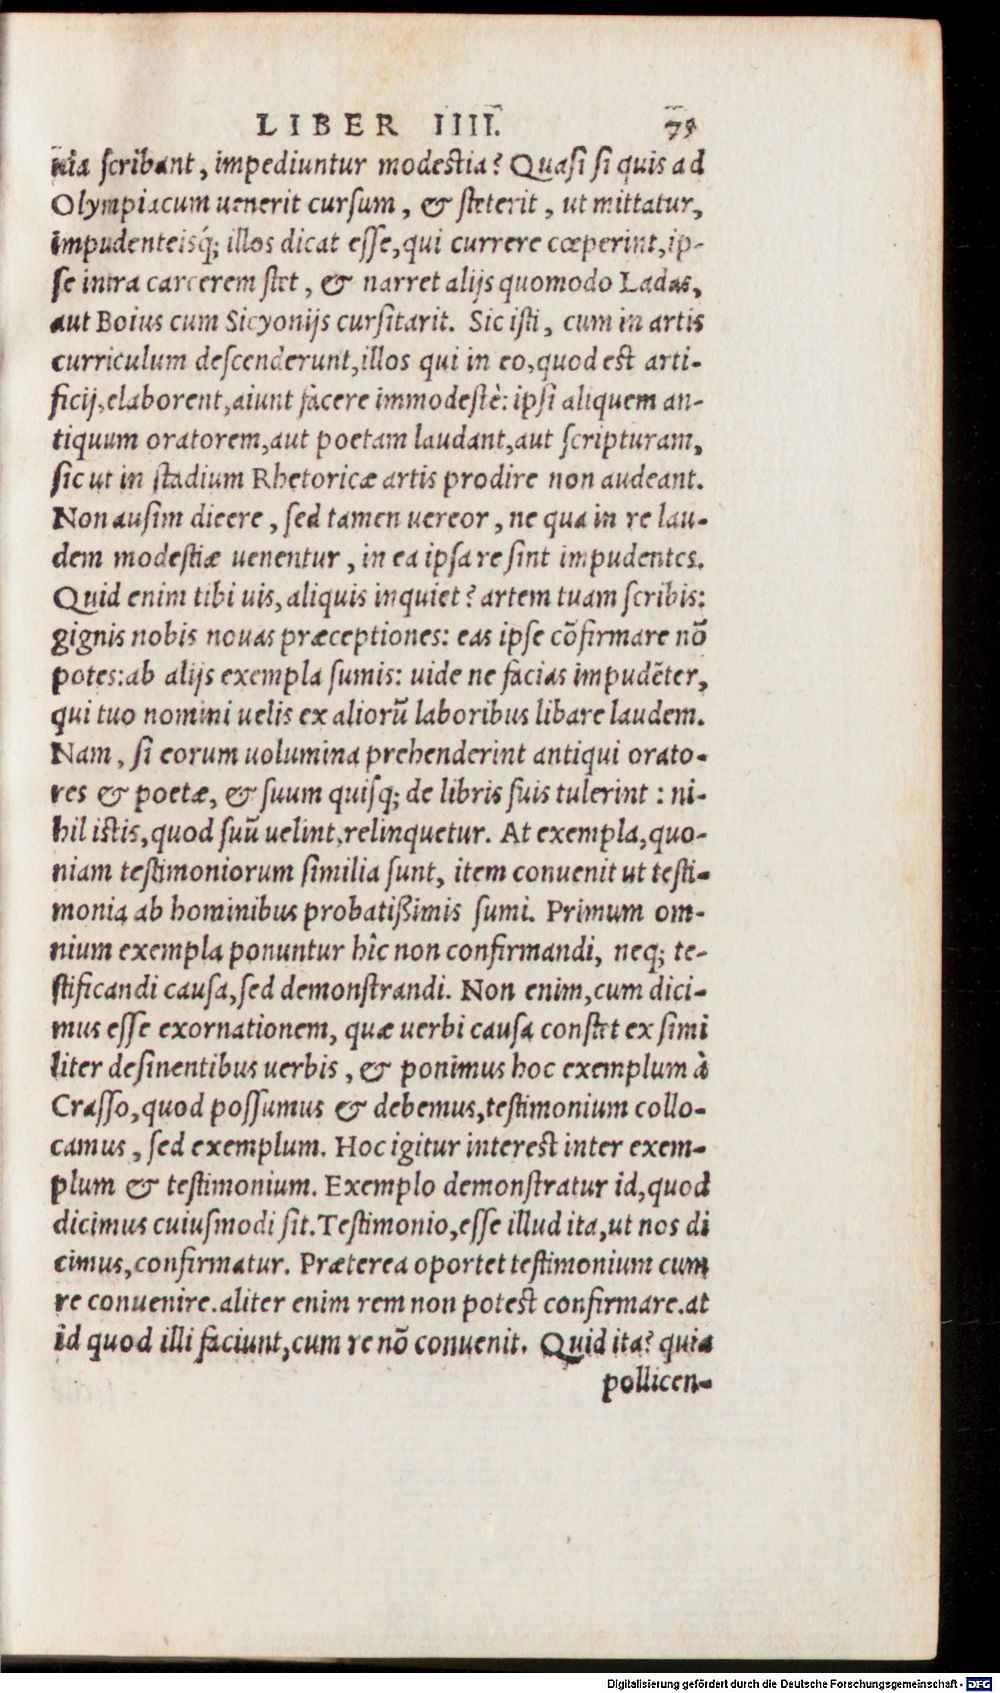 LIBER IIII. 75
nia scribant, impediuntur modestia? Quasi si quis ad
Olympiacum uenerit cursum, & steterit, ut mittatur,
impudenteisq́; illos dicat esse, qui currere cœperint, ip-
se intra carcerem stet, & narret alijs quomodo Ladas,
aut Boius cum Sicyonijs cursitarit. Sic isti, cum in artis
curriculum descenderunt, illos qui in eo, quod est arti-
ficij, elaborent, aiunt facere immodestè: ipsi aliquem an-
tiquum oratorem, aut poetam laudant, aut scripturam,
sic ut in stadium Rhetoricæ artis prodire non audeant.
Non ausim dicere, sed tamen uereor, ne qua in re lau-
dem modestiæ uenentur, in ea ipsa re sint impudentes.
Quid enim tibi uis, aliquis inquiet? artem tuam scribis:
gignis nobis nouas præceptiones: eas ipse cōfirmare nō
potes: ab alijs exempla sumis: uide ne facias impudēter,
qui tuo nomini uelis ex aliorū laboribus libare laudem.
Nam, si eorum uolumina prehenderint antiqui orato-
res & poetæ, & suum quisq; de libris suis tulerint: ni-
hil istis, quod suū uelint, relinquetur. At exempla, quo-
niam testimoniorum similia sunt, item conuenit ut testi-
monia ab hominibus probatißimis sumi. Primum om-
nium exempla ponuntur hîc non confirmandi, neq; te-
stificandi causa, sed demonstrandi. Non enim, cum dici-
mus esse exornationem, quæ uerbi causa constet ex simi
liter desinentibus uerbis, & ponimus hoc exemplum à
Crasso, quod possumus & debemus, testimonium collo-
camus, sed exemplum. Hoc igitur interest inter exem-
plum & testimonium. Exemplo demonstratur id, quod
dicimus cuiusmodi sit. Testimonio, esse illud ita, ut nos di
cimus, confirmatur. Præterea oportet testimonium cum
re conuenire. aliter enim rem non potest confirmare. at
id quod illi faciunt, cum re nō conuenit. Quid ita? quia
pollicen-
Digitalisierung gefördert durch die Deutsche Forschungsgemeinschaft - DFG